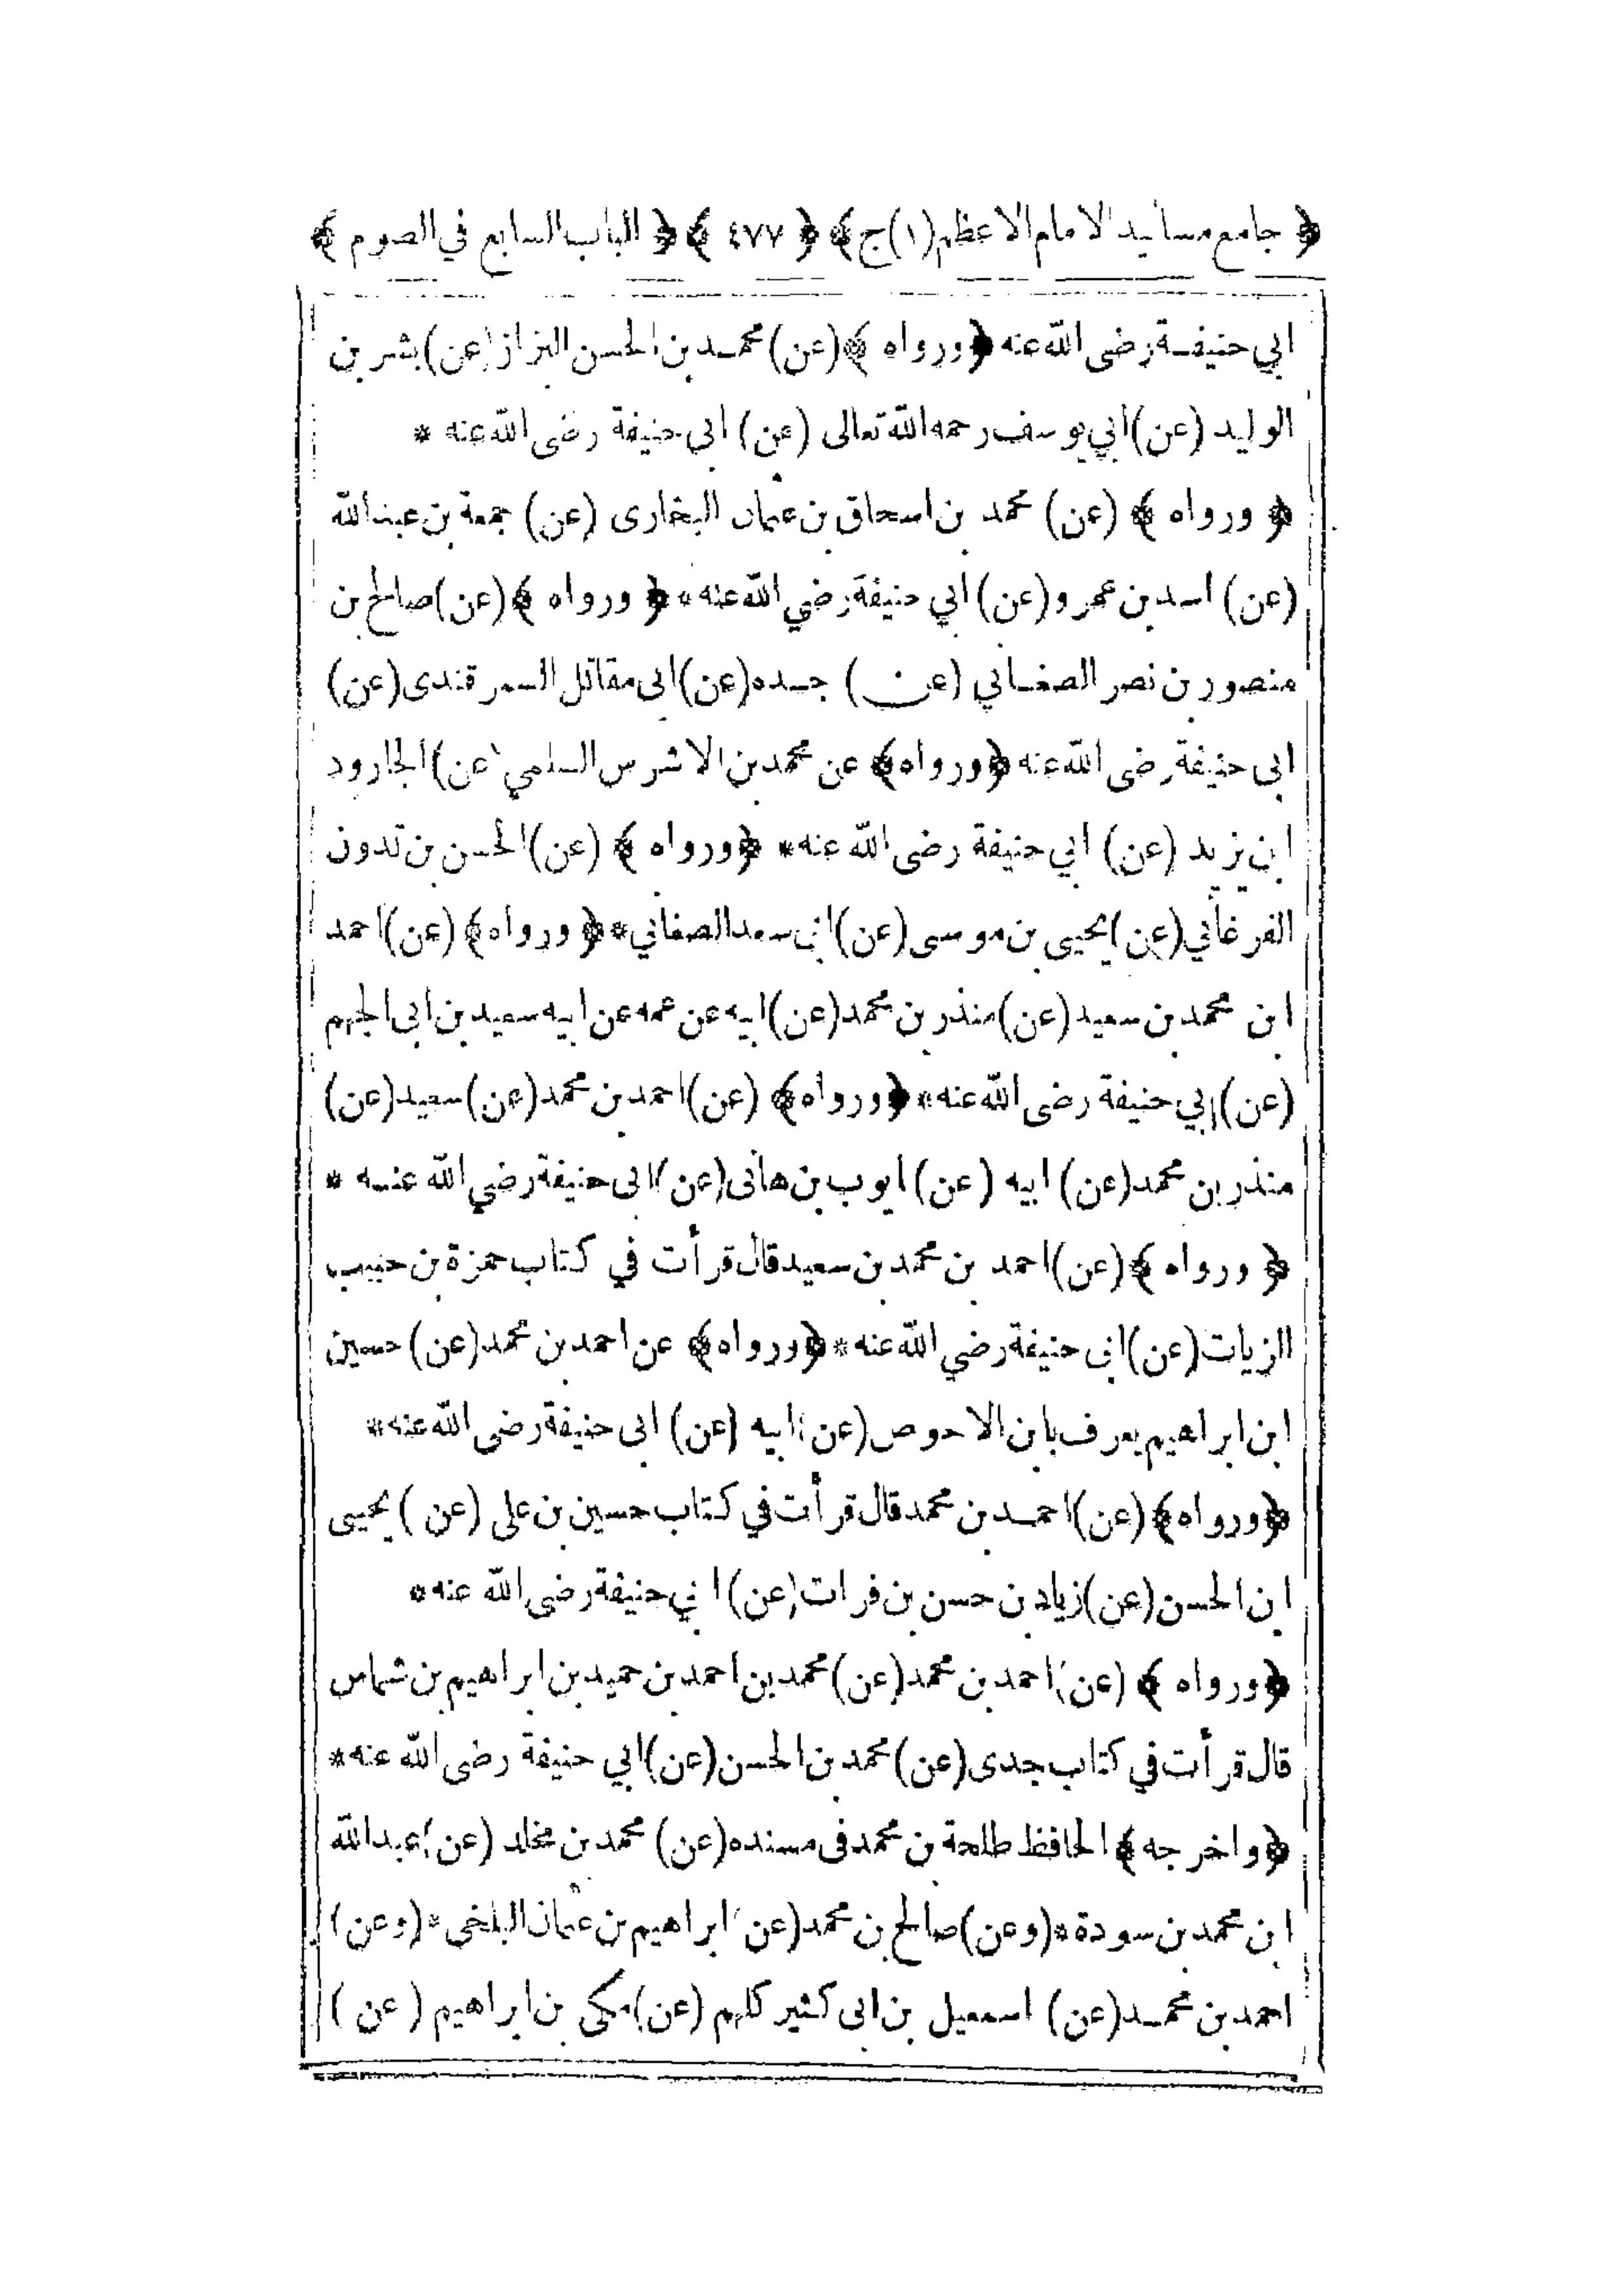 ﴿ جامع مسانيد الامام الاعظم (١) ج ﴾ ﴿ ٤٧٧ ﴾ ﴿ الباب السابع في الصوم ﴾
ابي حنيفة رضى الله عنه ﴿ ورواه ﴾ (عن) محمد بن الحسن البزاز (عن) بشر بن
الوليد (عن) ابي يوسف رحمه الله تعالى (عن) ابى حنيفة رضى الله عنه *
﴿ ورواه ﴾ (عن) محمد بن اسحاق بن عثمان البخارى (عن) جمعة بن عبدالله
(عن) اسد بن عمرو (عن) ابي حنيفة رضي الله عنه * ﴿ ورواه ﴾ (عن) صالح بن
منصور بن نصر الصغاني (عن) جده (عن) ابى مقاتل السمرقندى (عن)
ابى حنيفة رضى الله عنه ﴿ ورواه ﴾ عن محمد بن الاشرس السلمي (عن) الجارود
ابن يزيد (عن) ابي حنيفة رضى الله عنه * ﴿ ورواه ﴾ (عن) الحسن بن تدون
الفرغاني (عن) يحيى بن موسى (عن) ابى سعد الصغاني * ﴿ ورواه ﴾ (عن) احمد
ابن محمد بن سعيد (عن) منذر بن محمد (عن) ابيه عن عمه عن ابيه سعيد بن ابى الجهم
(عن) ابي حنيفة رضى الله عنه * ﴿ ورواه ﴾ (عن) احمد بن محمد (عن) سعيد (عن)
منذر بن محمد (عن) ابيه (عن) ايوب بن هانى (عن) ابى حنيفة رضي الله عنه *
﴿ ورواه ﴾ (عن) احمد بن محمد بن سعيد قال قرأت في كتاب حمزة بن حبيب
الزيات (عن) ابى حنيفة رضي الله عنه * ﴿ ورواه ﴾ عن احمد بن محمد (عن) حسين
ابن ابراهيم يعرف بابن الاحوص (عن) ابيه (عن) ابى حنيفة رضى الله عنه *
﴿ ورواه ﴾ (عن) احمد بن محمد قال قرأت في كتاب حسين بن على (عن) يحيى
ابن الحسن (عن) زياد بن حسن بن فرات (عن) ابي حنيفة رضى الله عنه *
﴿ ورواه ﴾ (عن) احمد بن محمد (عن) محمد بن احمد بن حميد بن ابراهيم بن شماس
قال قرأت في كتاب جدى (عن) محمد بن الحسن (عن) ابي حنيفة رضى الله عنه *
﴿ واخرجه ﴾ الحافظ طلحة بن محمد فى مسنده (عن) محمد بن مخلد (عن) عبدالله
ابن محمد بن سودة * (وعن) صالح بن محمد (عن) ابراهيم بن عثمان البلخى * (وعن)
احمد بن محمد (عن) اسمعيل بن ابى كثير كلهم (عن) مكى بن ابراهيم (عن)